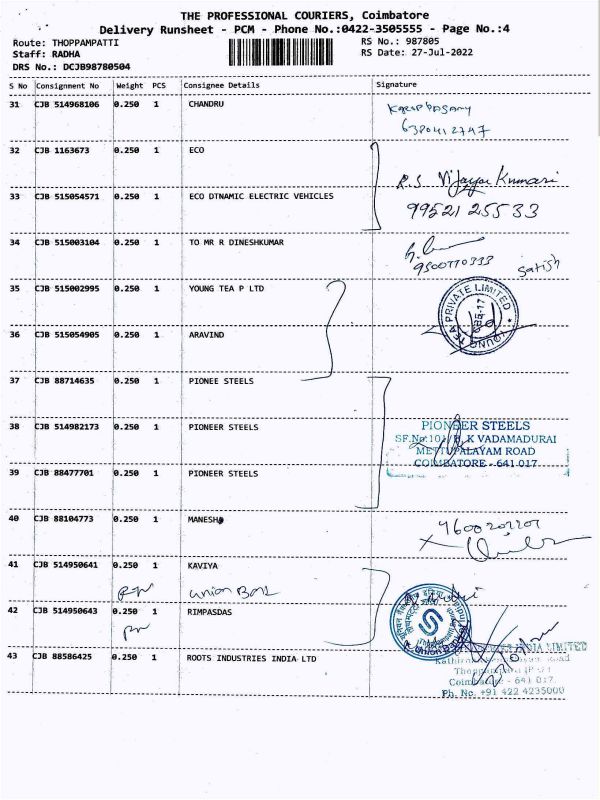 THE PROFESSIONAL COURIERS, Coimbatore
Delivery Runsheet - PCM - Phone No.:0422-3505555 - Page No.:4
Route: THOPPAMPATTI RS No.: 987805
Staff: RADHA RS Date: 27-Jul-2022
DRS No.: DCJB98780504
S No Consignment No Weight PCS Consignee Details Signature
31 CJB 514968106 0.250 1 CHANDRU
6380412747
32 CJB 1163673 0.250 1 ECO
R.S Vijaya Kumari
33 CJB 515054571 0.250 1 ECO DTNAMIC ELECTRIC VEHICLES
99521 25533
34 CJB 515003104 0.250 1 TO MR R DINESHKUMAR
9500770333 Satish
35 CJB 515002995 0.250 1 YOUNG TEA P LTD
YOUNG TEA PRIVATE LIMITED
36 CJB 515054905 0.250 1 ARAVIND
37 CJB 88714635 0.250 1 PIONEE STEELS
38 CJB 514982173 0.250 1 PIONEER STEELS
PIONEER STEELS
SF.No:101/ K VADAMADURAI
METTUPALAYAM ROAD
COIMBATORE - 641 017
39 CJB 88477701 0.250 1 PIONEER STEELS
40 CJB 88104773 0.250 1 MANESH
41 CJB 514950641 0.250 1 KAVIYA
union Bank
42 CJB 514950643 0.250 1 RIMPASDAS
43 CJB 88586425 0.250 1 ROOTS INDUSTRIES INDIA LTD
INDIA LIMITED
Road
Coimbatore - 641 017.
Ph. No. +91 422 4235000